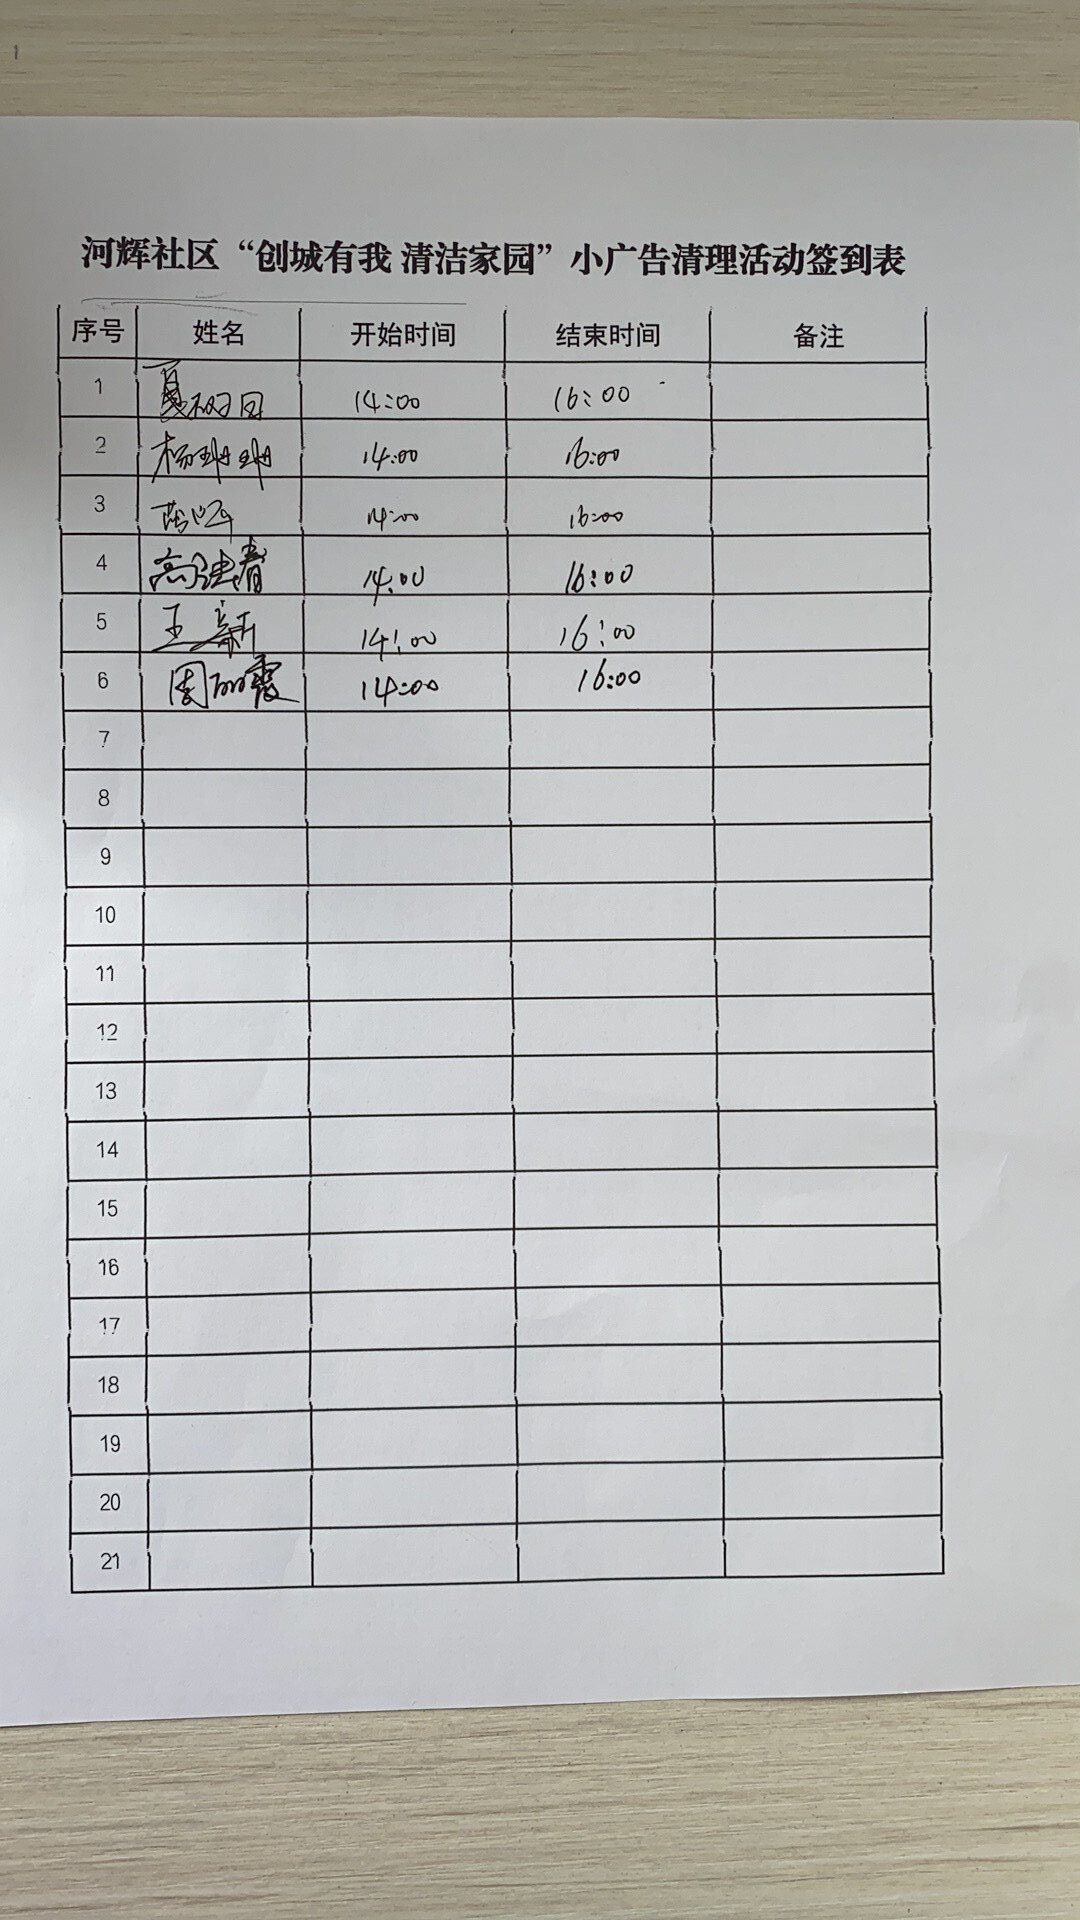 河辉社区“创城有我 清洁家园”小广告清理活动签到表
序号 姓名 开始时间 结束时间 备注
1 夏 14:00 16:00
2 杨珊珊 14:00 16:00
3 14:00 16:00
4 高 春 14:00 16:00
5 王新 14:00 16:00
6 周丽霞 14:00 16:00
7
8
9
10
11
12
13
14
15
16
17
18
19
20
21